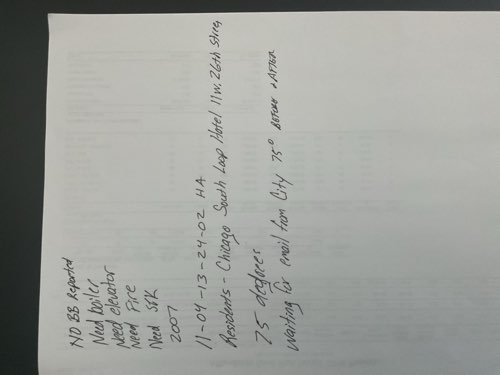 NO BB Reported
Need boiler
Need elevator
Need Fire
Need
2007
11-04-13-24-02 HA
Residents - Chicago South Loop Hotel 11 W. 26th Street
75 degrees
Waiting for email from City 75° BEFORE & AFTER